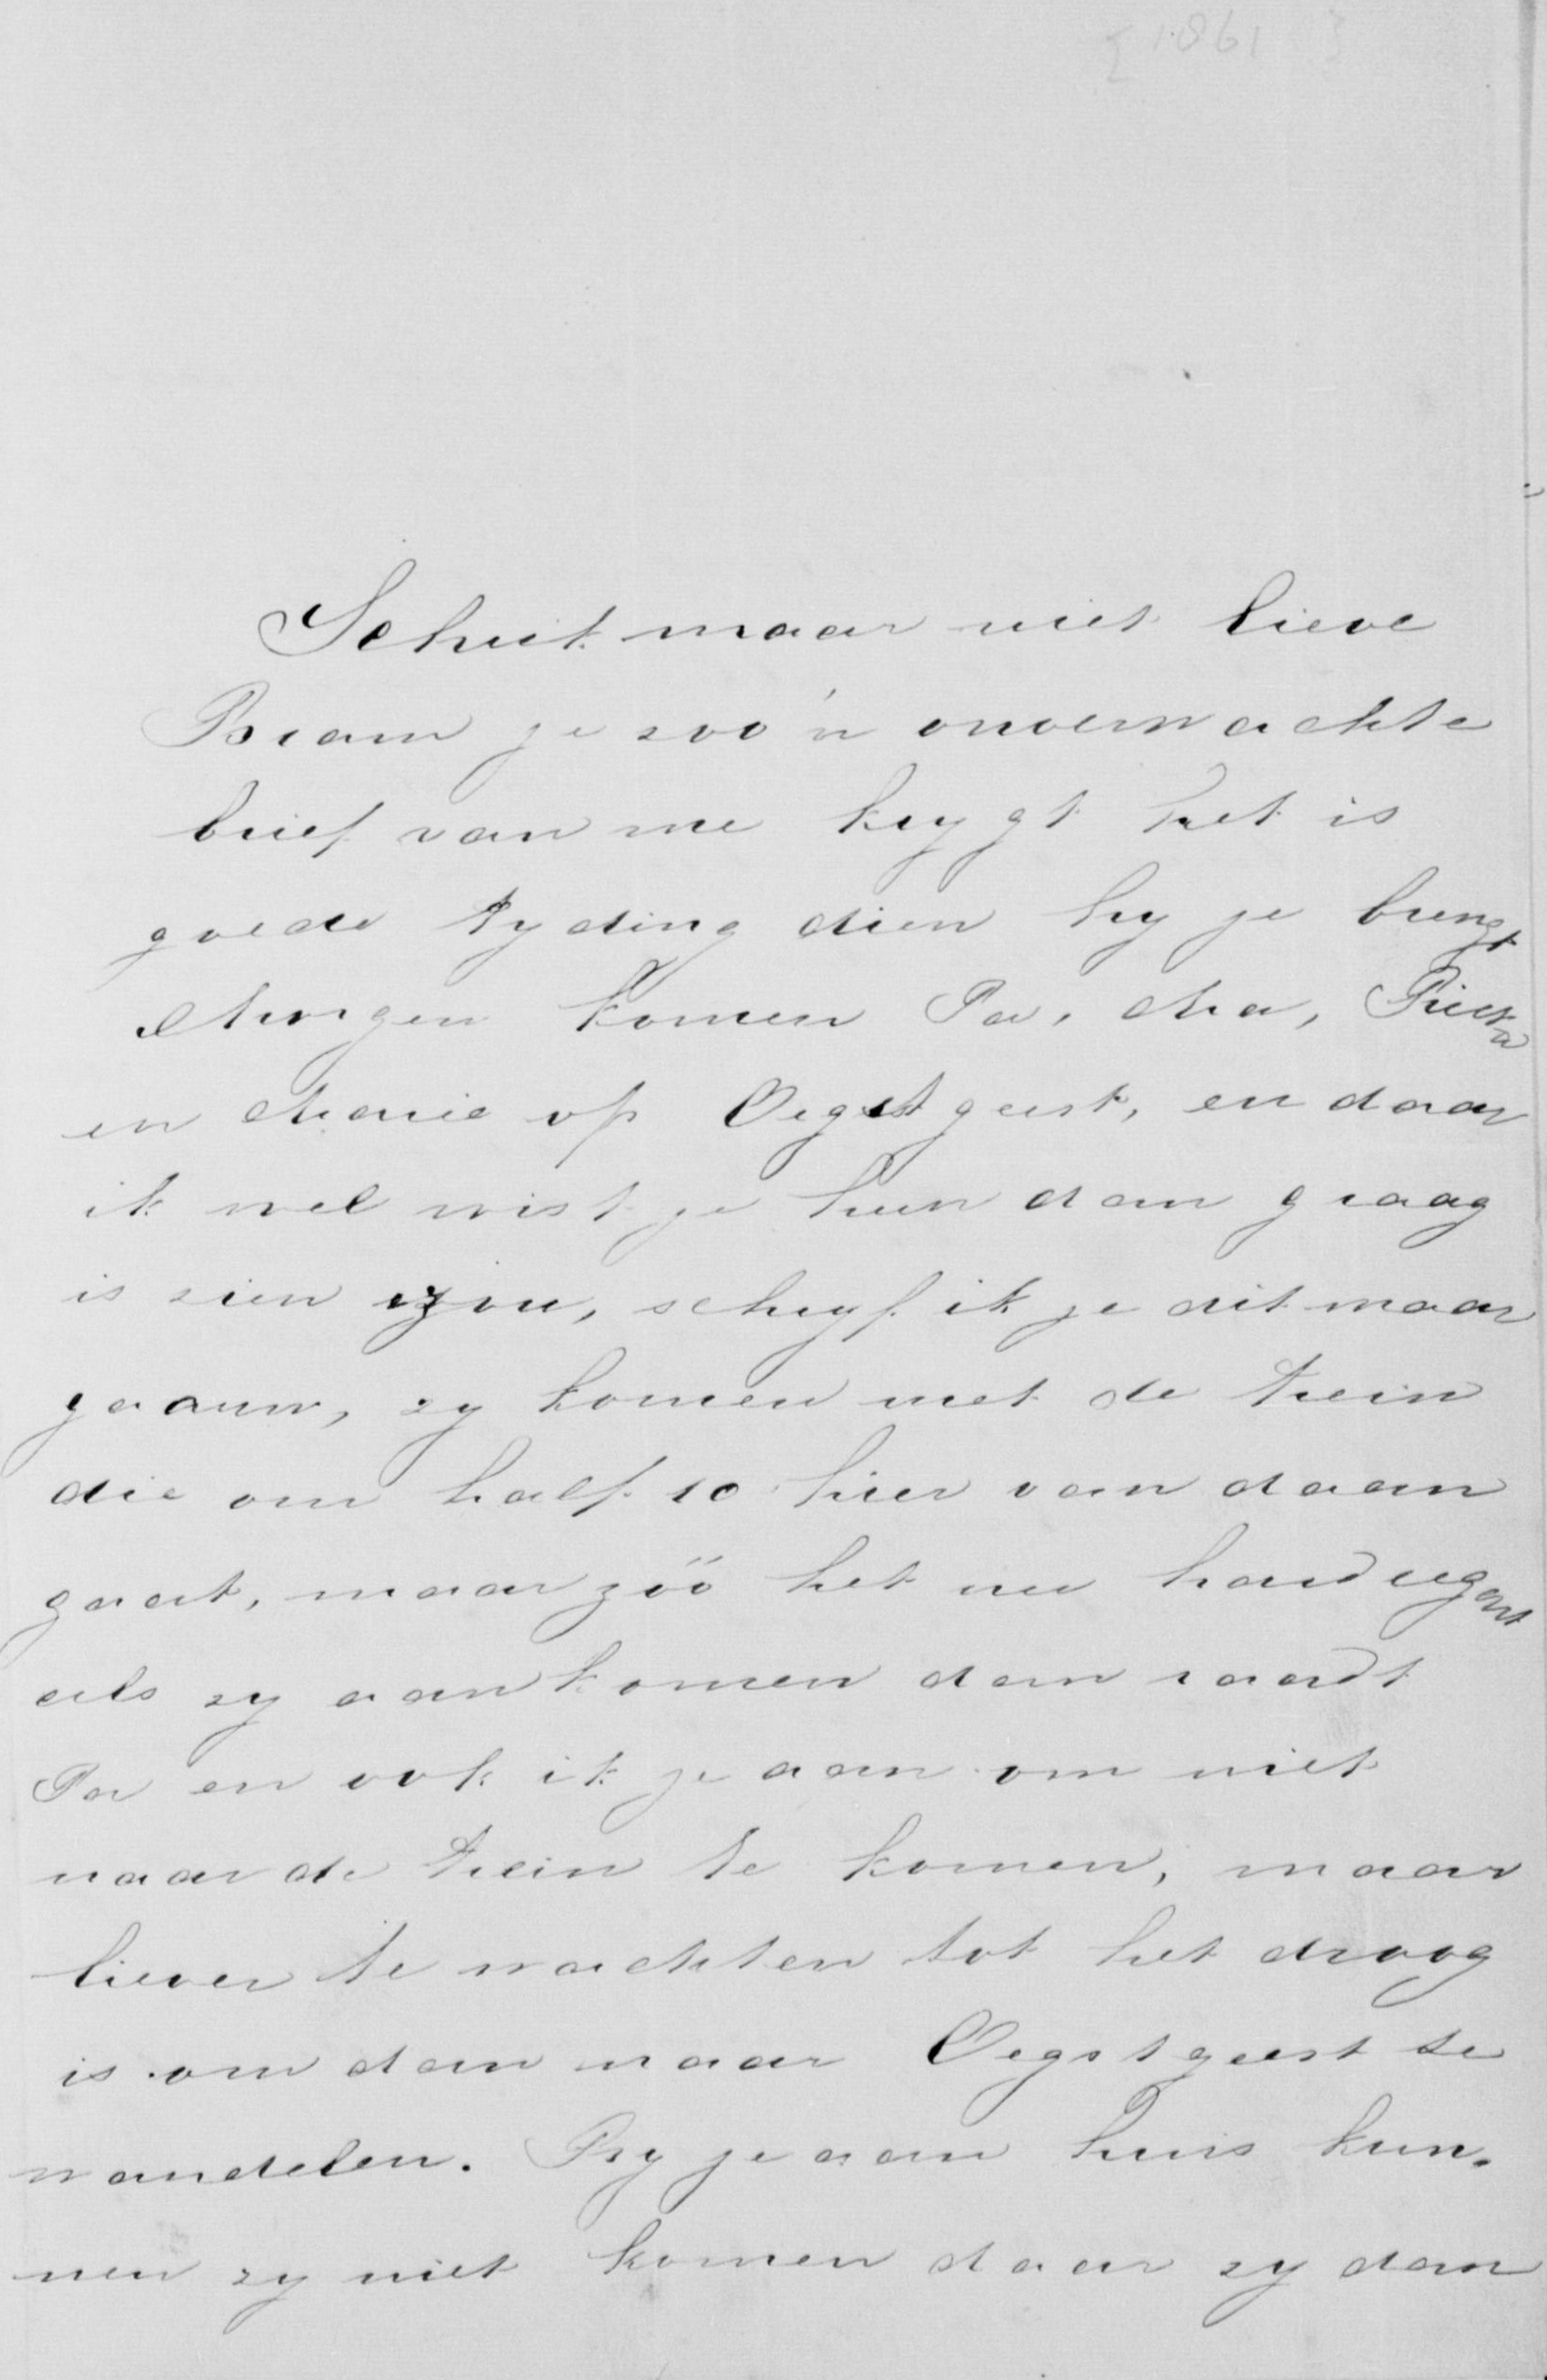 [1861]
Schrik maar niet lieve
Bram je zoo'n onverwachte
brief van me krygt het is
goede tyding dien hy je brengt
Morgen komen Pa, Ma, Pieta
en Marie op Oegstgeest, en daar
ik wel wist je hun dan graag
is zien zou, schryf ik je dit maar
gaauw, zy komen met de trein
die om half 10 hier van daan
gaat, maar zóó het nu hard regent
als zy aankomen dan raadt
Pa en ook ik je aan om niet
naar de trein te komen, maar
liever te wachten tot het droog
is om dan naar Oegstgeest te
wandelen. By je aan huis kun-
nen zy niet komen daar zy dan